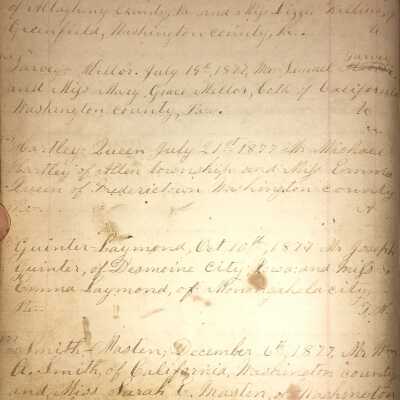 of Allegheny County, Pa and Miss Lizzie
Greenfield, Washington county, Pa.
Garvey
Garvey - Mellor. July 19th, 1877, Mr Samuel
and Miss Mary Grace Mellor, both of California
Washington county, Pa.
Hartley - Queen July 21st 1877 Mr Michael
Hartley of Allen township and Miss Emma
Queen of Fredericktown Washington county
Pa. A
Guinter - Laymond, Oct 10th, 1877 Mr Joseph
Guinter, of Desmoine City Iowa and miss
Emma Laymond, of Monongahela city,
Pa.
Smith - Masten; December 6th, 1877, Mr Wm
A. Smith, of California, Washington county
and Miss Sarah E. Masten, of Washington